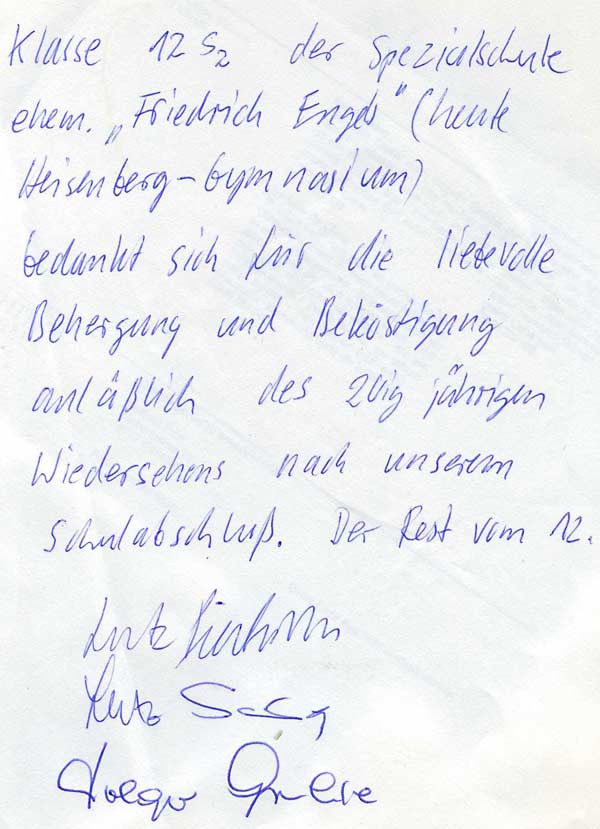 Klasse 12 S2 der Spezialschule
ehem. „Friedrich Engels" (heute
Heisenberg-Gymnasium)
bedankt sich für die liebevolle
Behergung und Beköstigung
anläßlich des 20ig jährigen
Wiedersehens nach unserem
Schulabschluß. Der Rest vom 12.
Lutz
Lutz
Holger